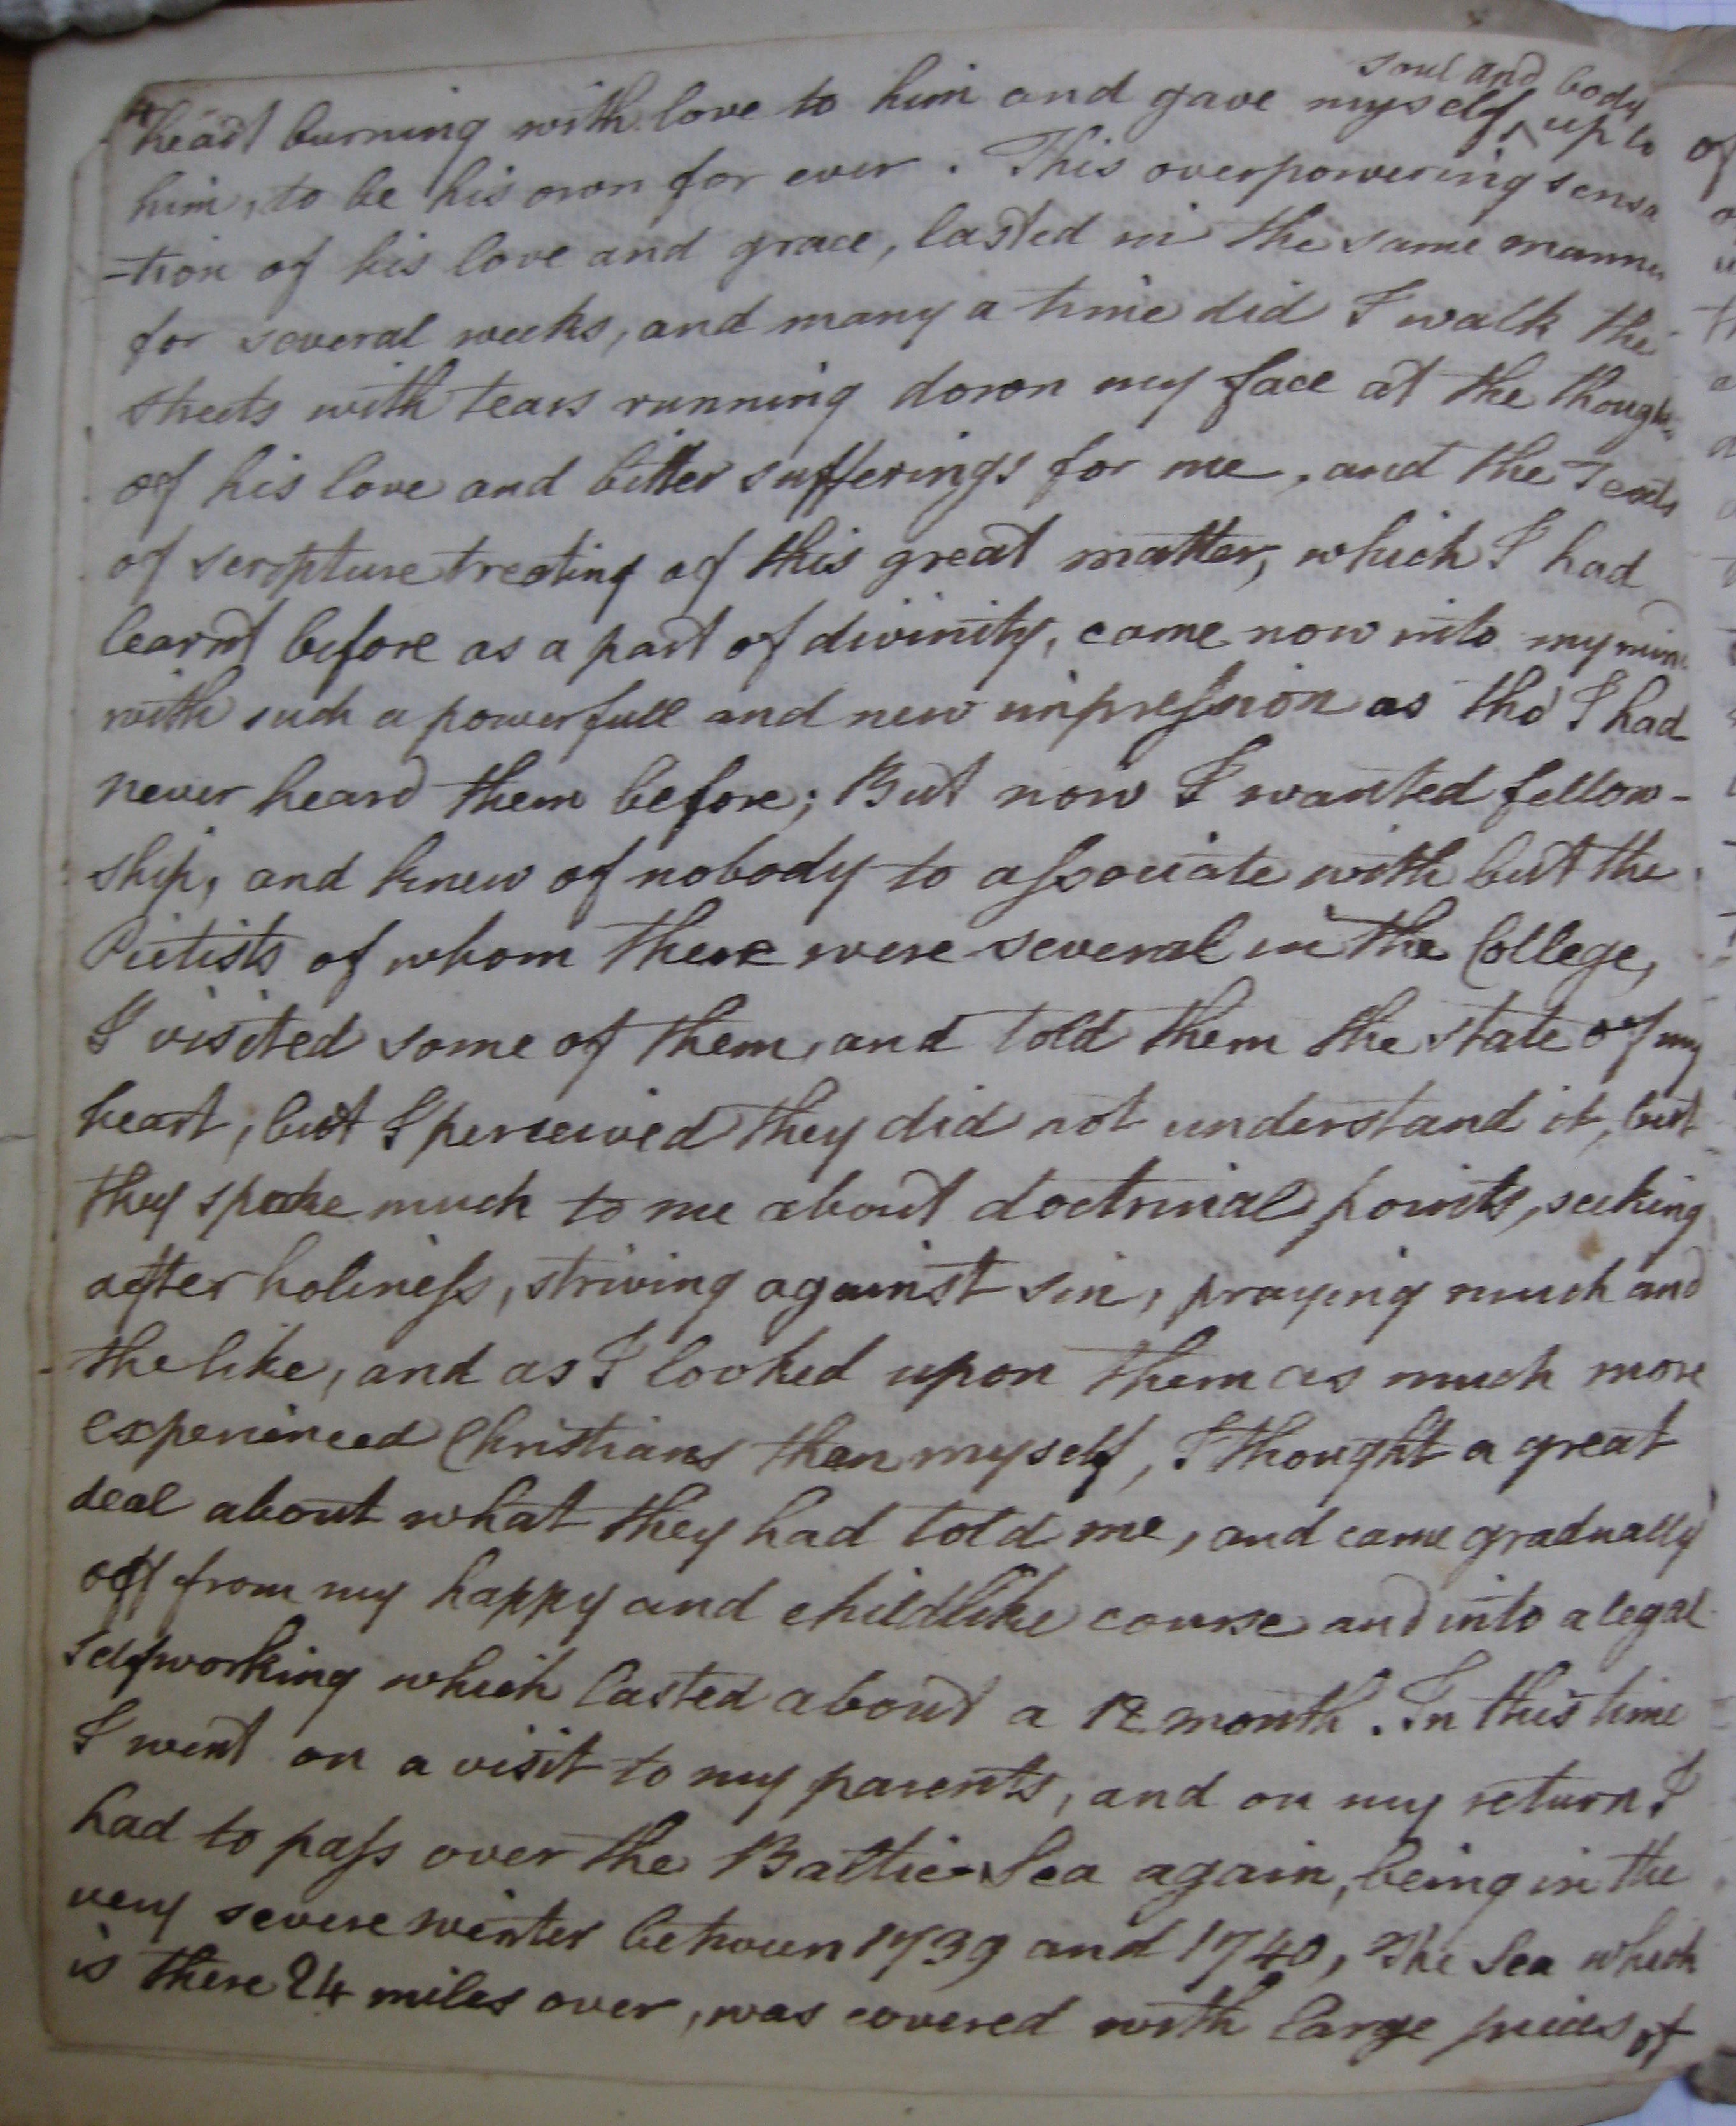 4
heart burning with love to him and gave myself soul and body up to
him, to be his own for ever. This overpowering sensa
-tion of his love and grace, lasted in the same manner
for several weeks, and many a time did I walk the
streets with tears running down my face at the thoughts
of his love and bitter sufferings for me, and the Texts
of scripture treating of this great matter, which I had
learnt before as a part of divinity, came now into my mind
with such a powerfull and new impreſsion as tho' I had
never heard them before; But now I wanted fellow-
ship, and knew of nobody to aſsociate with but the
Pietists of whom there were several in the College,
I visited some of them, and told them the state of my
heart, but I perceived they did not understand it, but
they spoke much to me about doctrinal points, seeking
after holineſs, striving against sin, praying much and
the like, and as I looked upon them as much more
experienced Christians than myself, I thought a great
deal about what they had told me, and came gradually
off from my happy and childlike course and into a legal
selfworking which lasted about a 12 month. In this time
I went on a visit to my parents, and on my return I
had to paſs over the Baltic Sea again, being in the
very severe winter between 1739 and 1740, The Sea which
is there 24 miles over, was covered with large pieces of